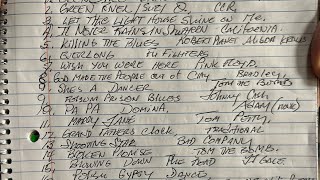 2. GREEN RIVER/SUSI Q. CCR.
3. LET THE LIGHT HOUSE SHINE ON ME.
4. IT NEVER RAINS IN SOUTHERN CALIFORNIA.
5. KILLING THE BLUES ROBERT PLANT
6. EVERLONG FU FIGHTERS
7. WISH YOU WERE HERE PINK FLOYD.
8. GOD MADE THE PEOPLE OUT OF CITY
9. SHE'S A DANCER TOM THE BOMB
9. FOLSOM PRISON BLUES JOHNNY CASH
10. PA PA DOMINA.
11. MARY JANE TOM PETTY,
12. GRAND FATHERS CLOCK, TRADITIONAL
13. SHOOTING STAR BAD COMPANY
14. BROKEN PROMISE TOM THE BOMB.
15. BLOWING DOWN THE ROAD JJ CALE.
GYPSY DANCE